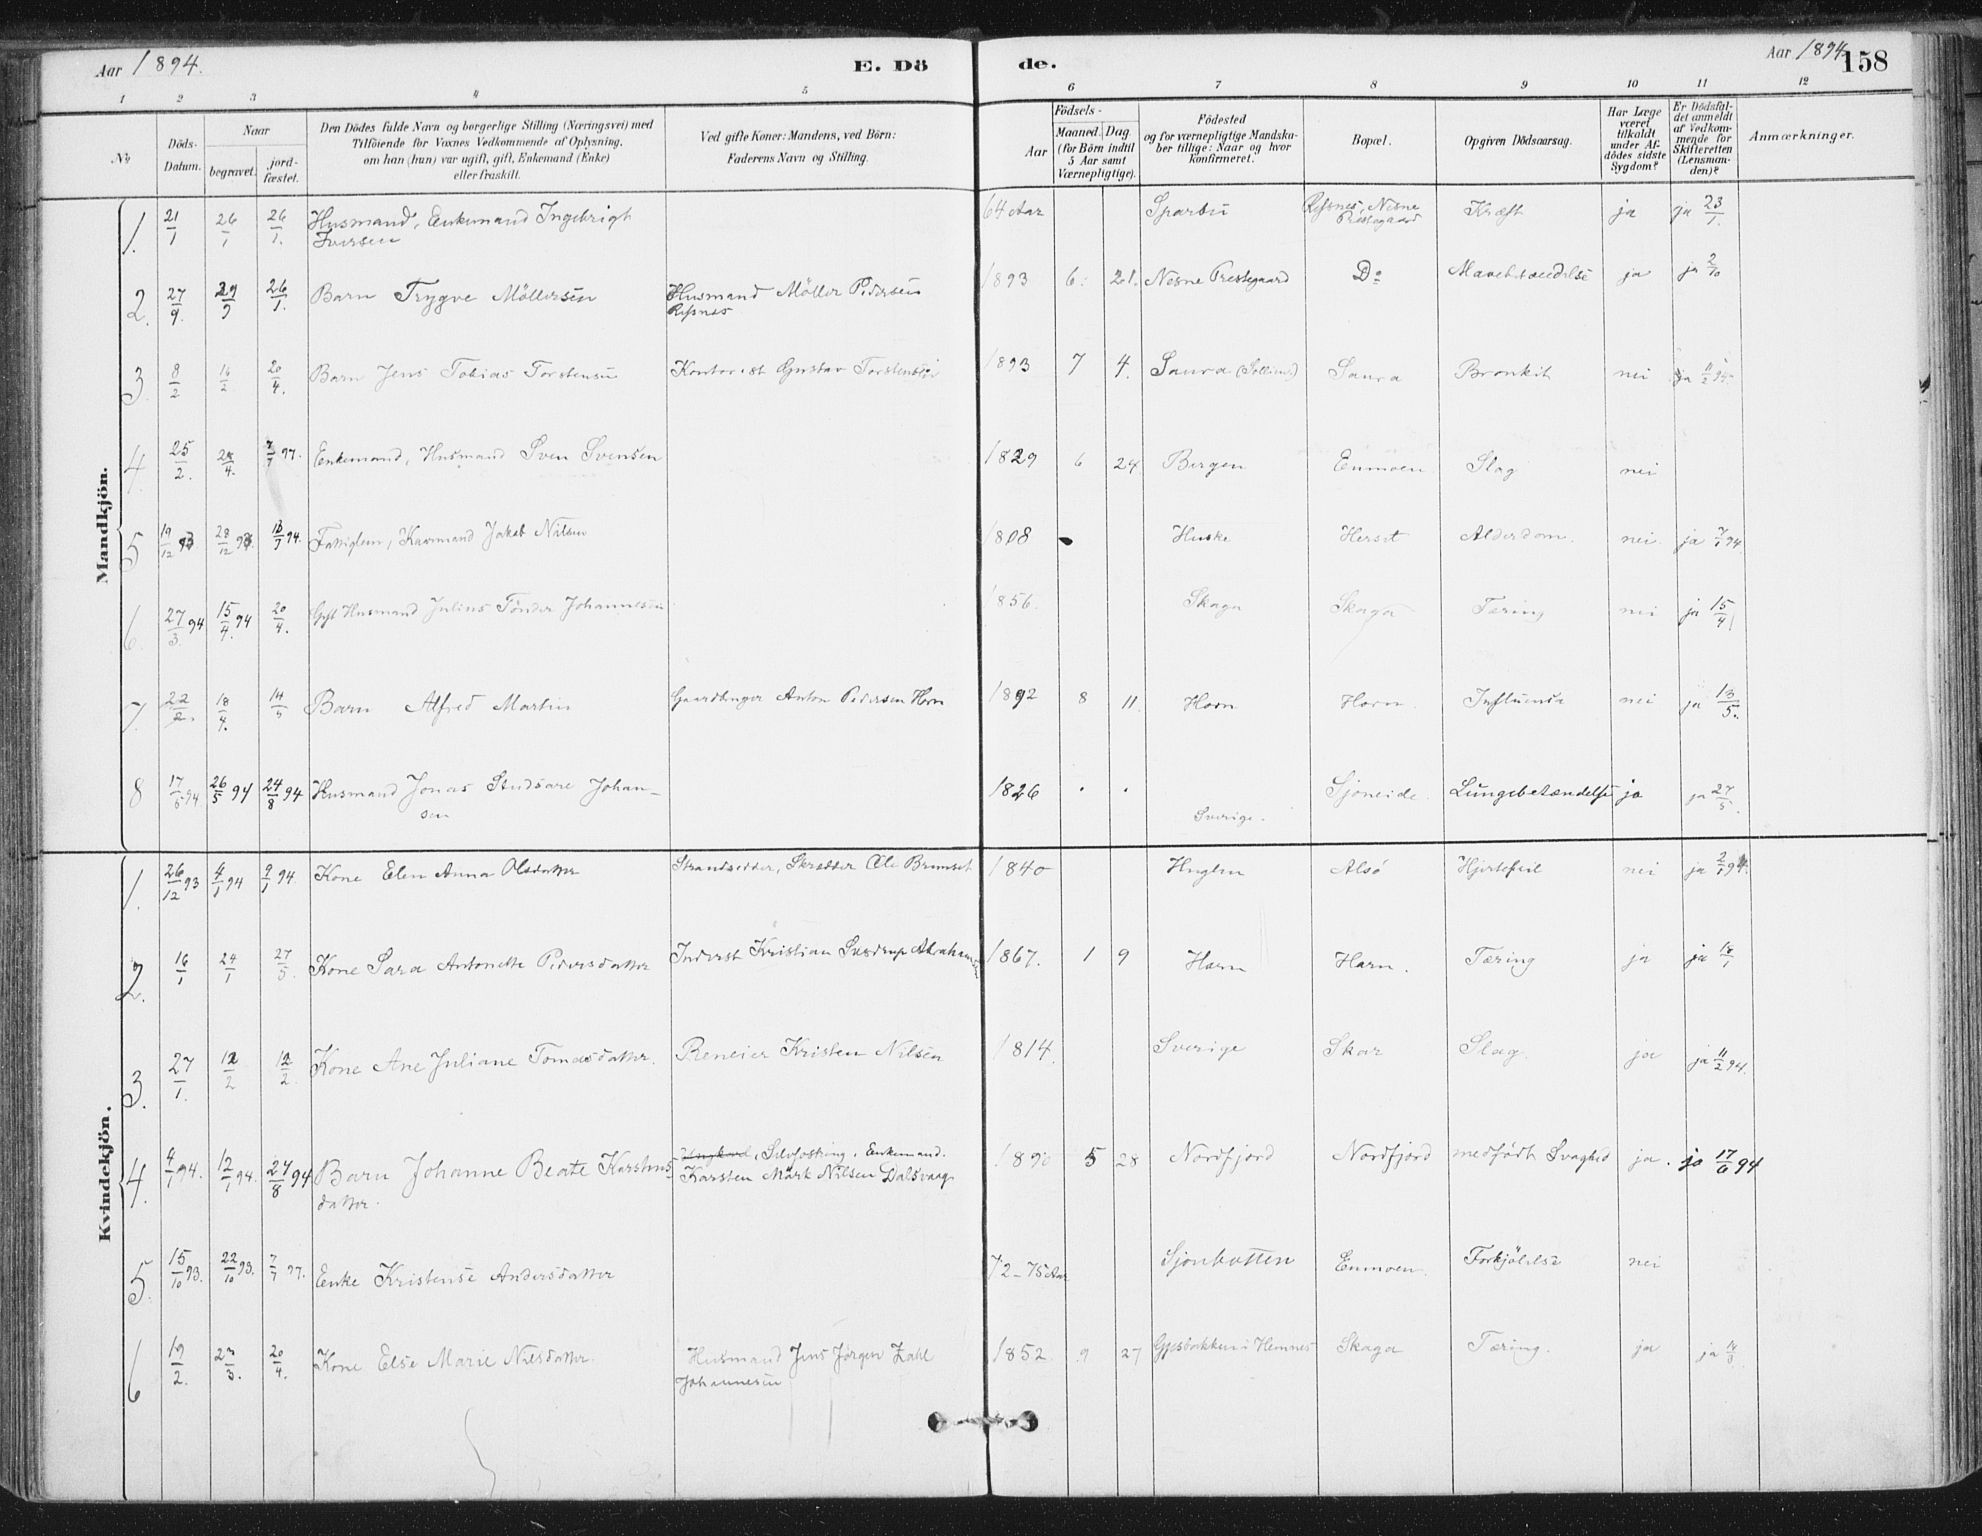 Aar 1894.
E. Dö
de.
Aar 1894.
158
1 2 3 4 5 6 7 8 9 10 11 12
No
Döds-Datum.
Naar
begravet.
jord-fæstet.
Den Dödes fulde Navn og borgerlige Stilling (Næringsvei) med
Tilföiende for Voxnes Vedkommende af Oplysning.
om han (hun) var ugift, gift, Enkemand (Enke)
eller fraskilt.
Ved gifte Koner: Mandens, ved Börn:
Faderens Navn og Stilling.
Födsels-
Aar
Maaned. Dag.
(for Börn indtil
5 Aar samt
Værnepligtige).
Födested
og for værnepligtige Mandska-
ber tillige: Naar og hvor
konfirmeret.
Bopæl.
Opgiven Dödsaarsag.
Har Læge
været
tilkaldt
under Af-
dödes sidste
Sygdom?
Er Dödsfal-
det anmeldt
af Vedkom-
mende for
Skifteretten
(Lensman-
den)?
Anmærkninger.
Mandkjön.
1. 21/1 26/1 26/1. Husmand, Enkemand Ingebrigt
Iversen
64 Aar Sparbu Refsnes, Nesne
Prestegaard
Kræft ja ja 23/1.
2. 27/9. 29/9 26/1 Barn Trygve Möllersen Husmand Möller Pedersen
Refsnes
1893 6. 21. Nesne Prestegaard Do Mavebetændelse ja ja 2/10
3. 8/2 16/2 20/4. Barn Jens Tobias Torstensen Kontorist Gustav Torstensen 1893 7 4. Saura Saura Bronkit nei ja 11/2 94.
4. 25/2. 4. 7/7 97. Enkemand, Husmand Sven Svensen 1829 6 24 Bergen Enmoen Slag nei
5 19/12 93 28/12 93. 94. Fattiglem, Karmand Jakob Nilsen 1808 Huske Herset Alderdom. nei. ja 7/1 94
6. 27/3. 94 15/4. 94 20/4. Gift Husmand Julius Tönder Johannesen 1856. Skaga Skaga Tæring nei ja 15/4
7. 22/2. 18/4. 14/5 Barn Alfred Martin Gaardbruger Anton Pedersen Horn 1892 8 11. Horn Horn. Influensa nei ja 13/5.
8 17/5 94 26/5 94 24/8 94 Husmand Jonas Sudsare Johan-
sen
1826 . . Sverige. Sjoneide. Lungebetændelse ja ja 27/5.
Kvindekjön.
1. 26/12 93 4/1 94 9/1 94. Kone Elen Anna Olsdatter Strandsidder, Skrædder Ole Brunset 1840 Huglen Alsö Hjertefeil nei ja 2/1 94.
2. 16/1 24/1 27/5. Kone Sara Antonette Pedersdatter Inderst Kristian Susdrup Abrahamsen 1867. 1 9 Horn Horn. Tæring ja ja 18/1
3. 27/1. 12/2 12/2. Kone Ane Juliane Tomasdatter. Reneier Kristen Nilsen 1814. Sverige Skar Slag. ja ja 11/2 94.
4. 4/1 94. 12/1 94. 24/8 94 Barn Johanne Beate Karstens-
datter.
Ungkarl, Selvfostring, Enkemand.
Karsten Mörk Nilsen Dalsvaag
1890 5 28 Nordfjord Nordfjord medfödt Svaghed ja. ja 17/6 94
5. 15/10 93. 22/10 93. 7/7 97. Enke Kristense Andersdatter 72-75 Aar Sjonbotten Enmoen. Forkjölelse nei
6 19/2. 23/3. 20/4. Kone Else Marie Nilsdatter. Husmand Jens Jörgen Zahl
Johannesen
1852. 9 27 i Hemnes Skaga Tæring. ja ja